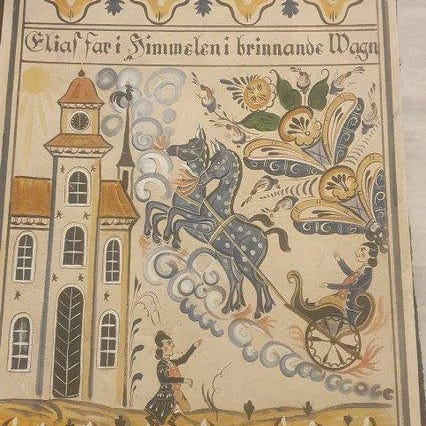 Elias far i Himmelen i brinnande Wagn